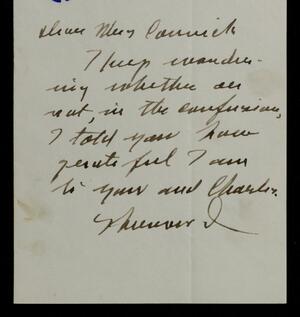 Dear Mrs Connick
I keep wonder-
ing whether or
not, in the confusion,
I told you how
grateful I am
to you and Charles.
Whenever I